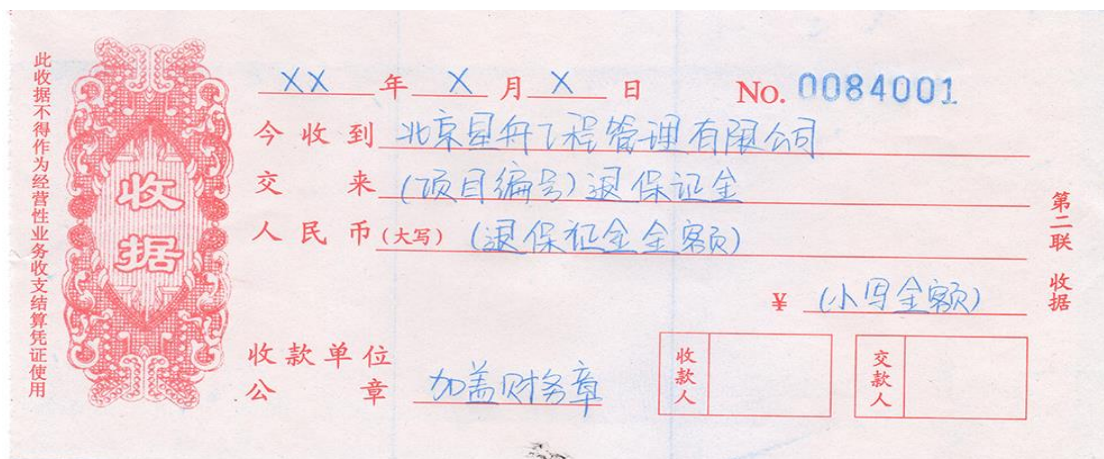 此收据不得作为经营性业务收支结算凭证使用
收据
XX 年 X 月 X 日 No. 0084001
今收到 北京星舟工程管理有限公司
交来 (项目编号)退保证金
人民币(大写) (退保证金金额)
¥ (小写金额)
收款单位
公章 加盖财务章
收款人
交款人
第二联 收据